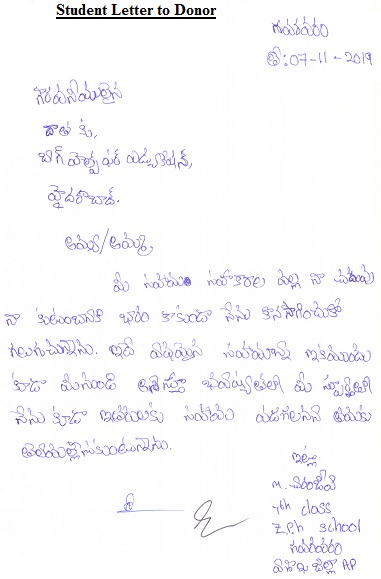 Student Letter to Donor
గవరవరం
తే: 07-11-2019
గౌరవనీయులైన
దాత కు,
బిగ్ హెల్ప్ ఫర్ ఎడ్యుకేషన్,
హైదరాబాద్.
అయ్య/అమ్మ,
మీ సహాయ సహకారాల వల్ల నా చదువు
నా కుటుంబానికి భారం కాకుండా నేను కొనసాగించుకో
గలుగుచున్నాను. ఇదే విధమైన సహాయాన్ని ఇకముందు
కూడా మీనుండి ఆశిస్తూ భవిష్యత్తులో మీ స్ఫూర్తితో
నేను కూడా ఇతరులకు సహాయం పడగలనని తమకు
తెలియజేసుకుంటున్నాను.
ఇట్లు
M. చిరంజీవి
7th class
Z.P.H School
విశాఖ జిల్లా AP